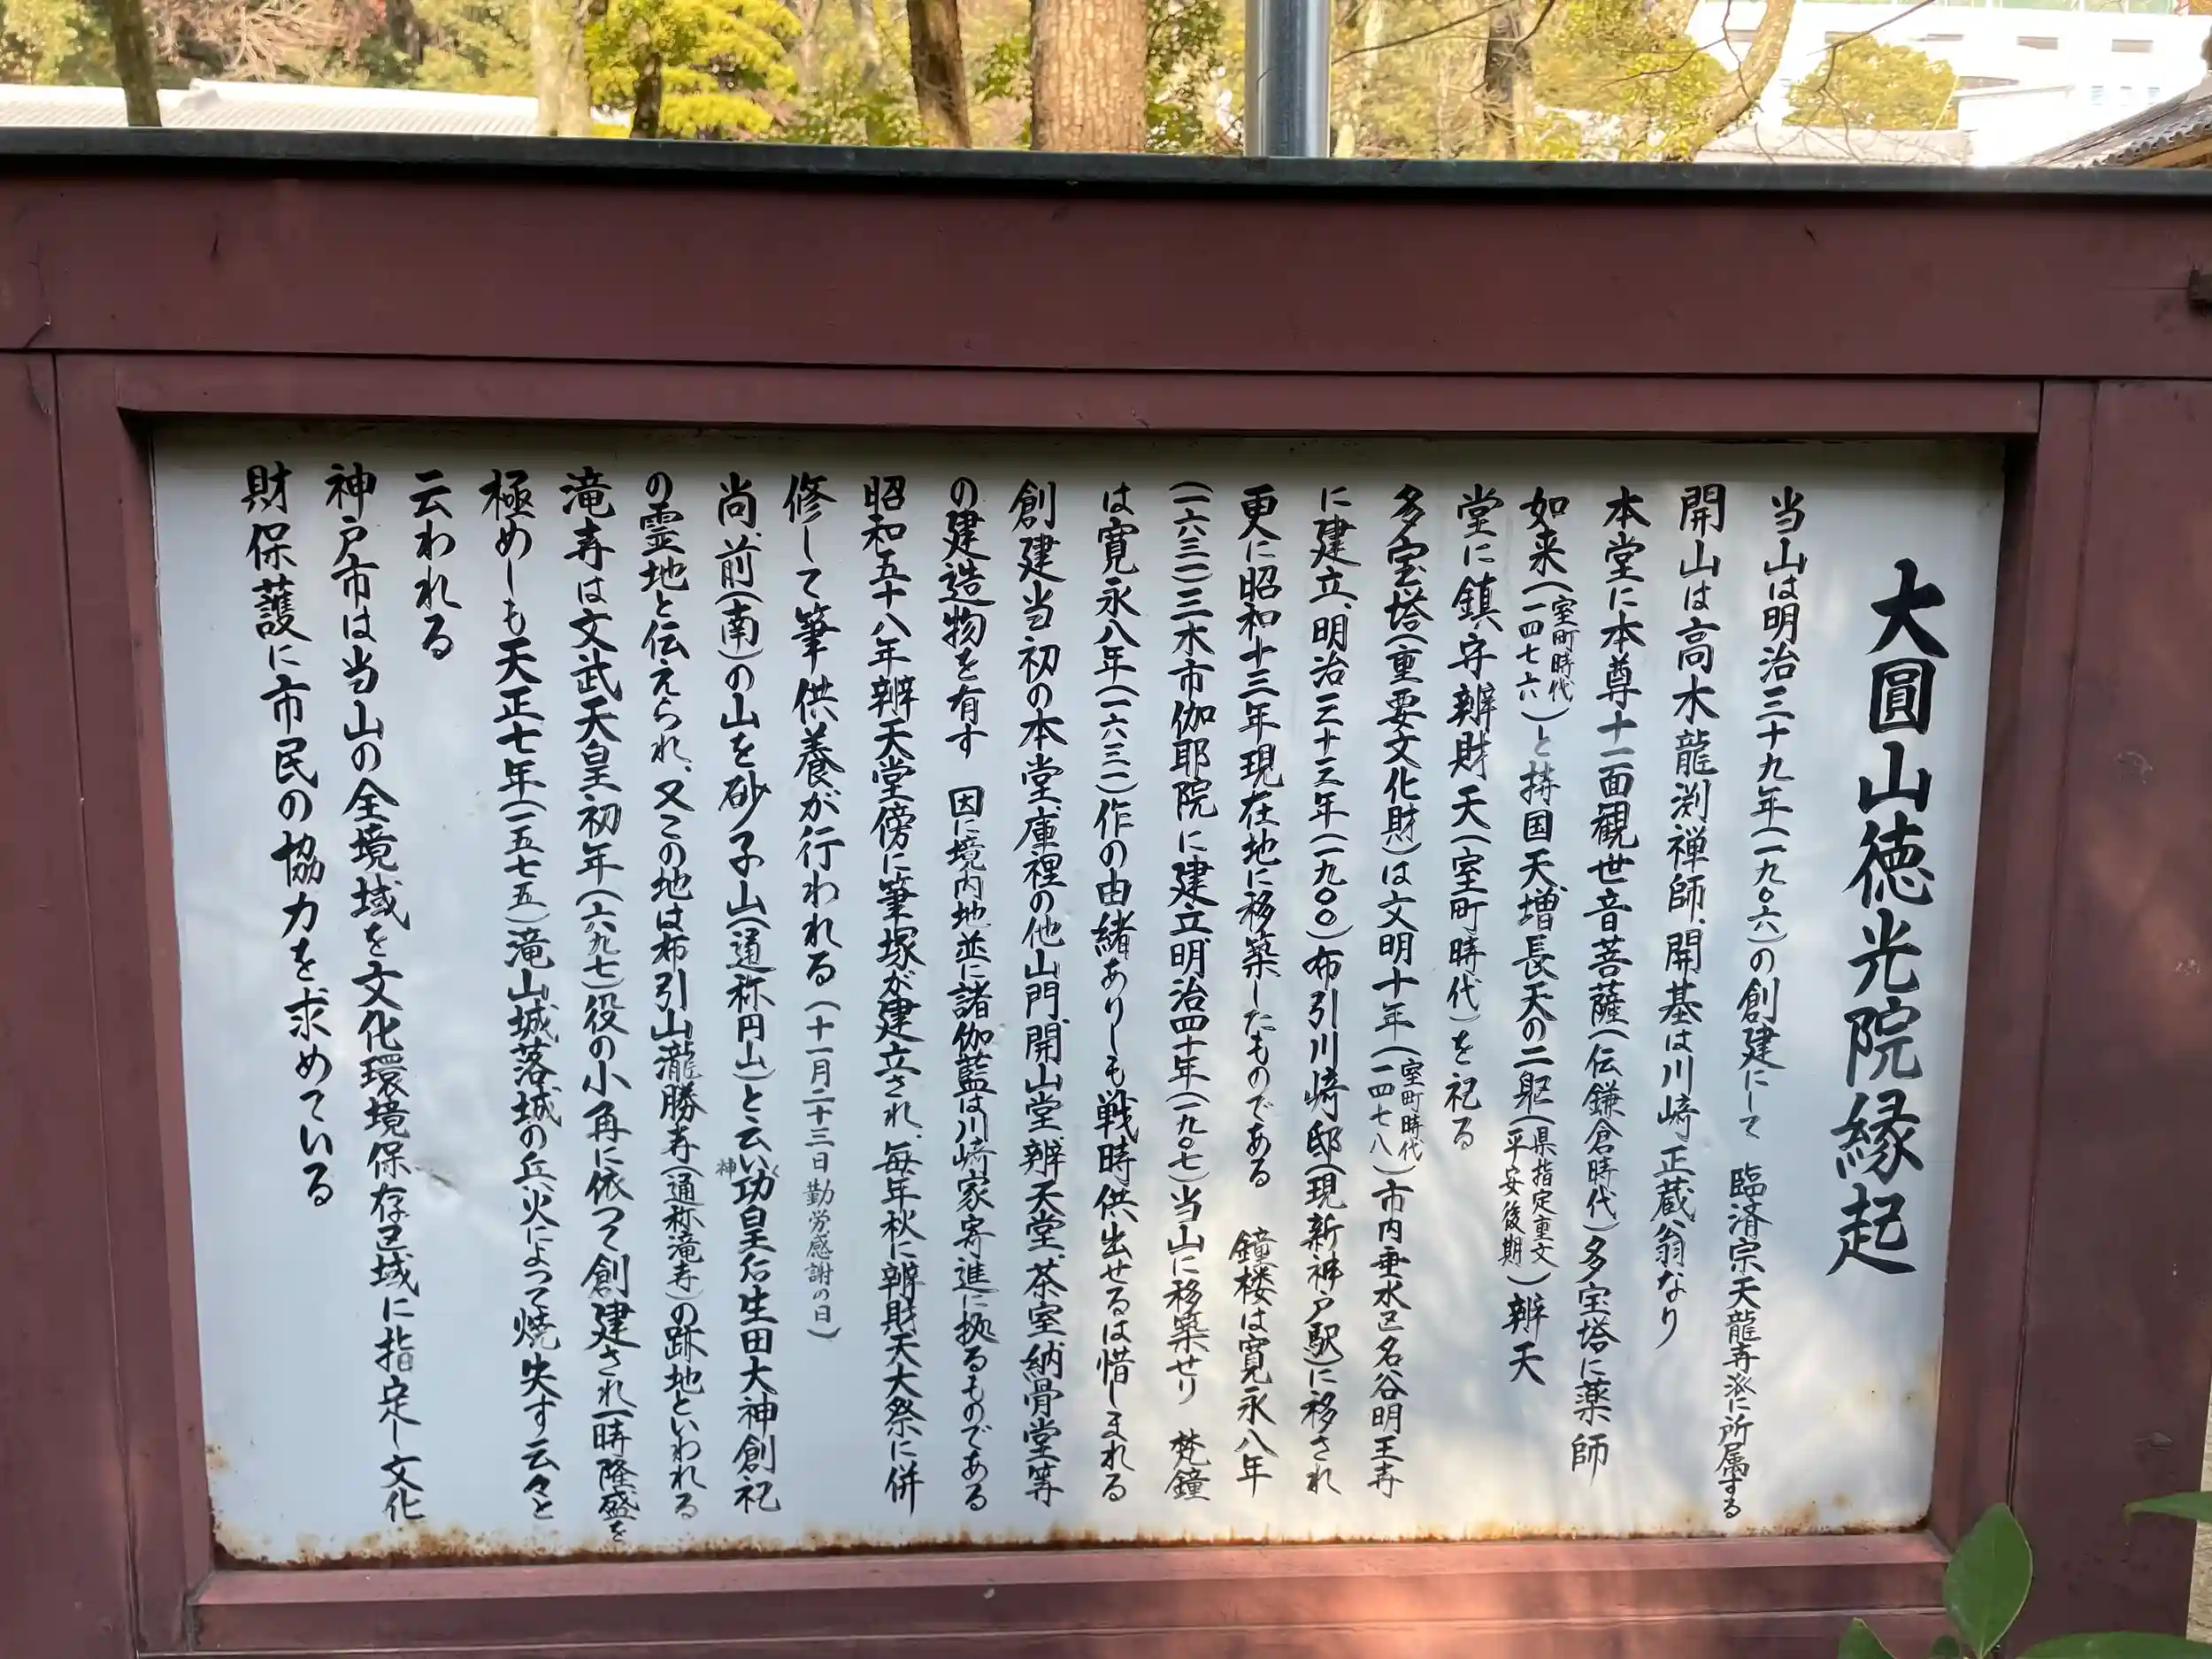 大圓山徳光院縁起
当山は明治三十九年(一九〇六)の創建にして 臨済宗天龍寺派に所属する
開山は高木龍渕禅師、開基は川崎正蔵翁なり
本堂に本尊十一面観世音菩薩(伝鎌倉時代)多宝塔に薬師
如来(室町時代一四七六)と持国天、増長天の二躯(県指定重文平安後期)辨天
堂に鎮守辨財天(室町時代)を祀る
多宝塔(重要文化財)は文明十年(室町時代一四七八)市内垂水区名谷明王寺
に建立、明治三十三年(一九〇〇)布引川崎邸(現新神戸駅)に移され
更に昭和十三年現在地に移築したものである 鐘楼は寛永八年
(一六三一)三木市伽耶院に建立、明治四十年(一九〇七)当山に移築せり 梵鐘
は寛永八年(一六三一)作の由緒ありしも戦時供出せるは惜しまれる
創建当初の本堂、庫裡の他山門、開山堂、辨天堂、茶室、納骨堂等
の建造物を有す 因に境内地並に諸伽藍は川崎家寄進に拠るものである
昭和五十八年辨天堂傍に筆塚が建立され、毎年秋に辨財天大祭に併
修して筆供養が行われる(十一月二十三日勤労感謝の日)
尚、前(南)の山を砂子山(通称円山)と云い神功皇后生田大神創祀
の霊地と伝えられ、又この地は布引山瀧勝寺(通称滝寺)の跡地といわれる
滝寺は文武天皇初年(六九七)役の小角に依って創建され一時隆盛を
極めしも天正七年(一五七五)滝山城落城の兵火によって焼失す云々と
云われる
神戸市は当山の全境域を文化環境保存区域に指定し文化
財保護に市民の協力を求めている